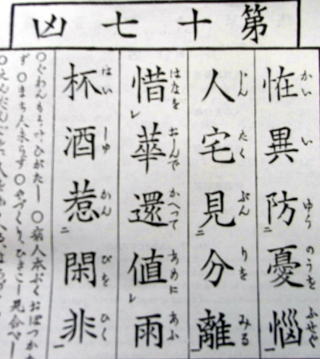 第十七凶
恠異防憂惱
かい い ゆう のうを ふせぐ
人宅見分離
じん たく ぶん りを みる
惜華還値雨
はなを おしんで かへつて あめに あふ
杯酒惹閑非
はい しゆ かん ぴを ひく
○ぐわんもう叶ひがたし ○病人本ぷくおぼつか
ず ○まち人来らず ○やづくり、ひきこし見合べ